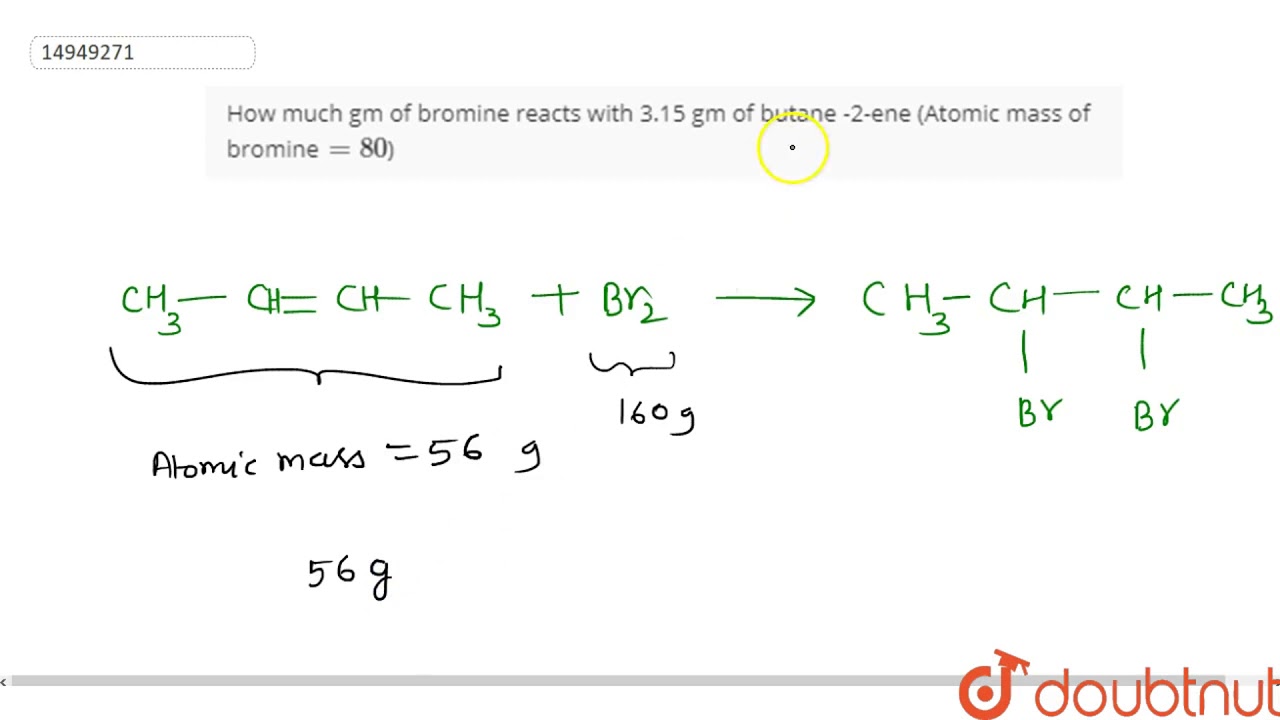 14949271
How much gm of bromine reacts with 3.15 gm of butane -2-ene (Atomic mass of
bromine = 80)
CH3 — CH = CH — CH3 + Br2 ⟶ CH3 — CH — CH — CH3
Br Br
160 g
Atomic mass = 56 g
56 g
doubtnut